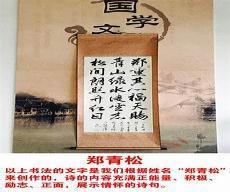 国学
文
郑重其心福天赐
青山绿水
松间朗照
郑青松
以上书法的文字是我们根据姓名“郑青松”
来创作的，诗的内容充满正能量、积极、
励志、正面，展示情怀的诗句。